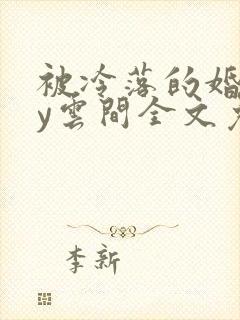 被冷落的婚
y雲間全文
李新